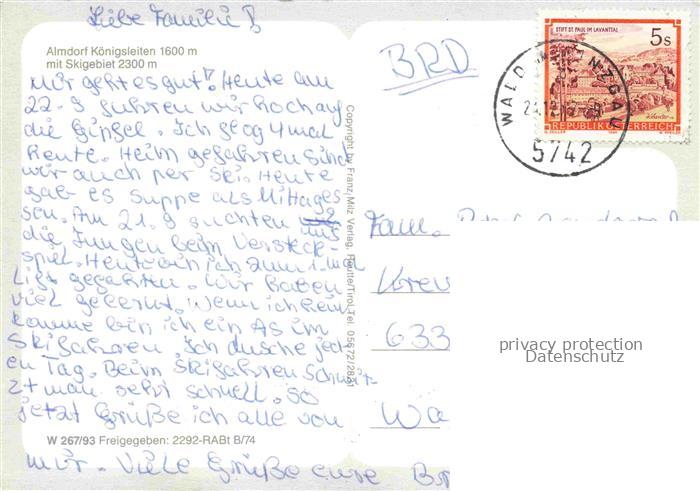 Liebe Familie!
Almdorf Königsleiten 1600 m
mit Skigebiet 2300 m
Mir geht es gut! Heute am
22.9 fuhren wir hoch auf
die Gipfel. Ich flog 4 mal
heute. Heim gefahren sind
wir auch per Ski. Heute
gab es Suppe als Mittages
sen. Am 21.9 suchten uns
die Jungen beim Versteck-
spiel. Heute bin ich zum 1. mal
Lift gefahren. Wir haben
viel gelernt. Wenn ich heim
komme bin ich ein As im
Skifahren. Ich dusche jed
en Tag. Beim Skifahren schwit
zt man sehr schnell. So
jetzt Grüße ich alle von
W 267/93 Freigegeben: 2292-RABt B/74
mir. Viele Grüße eure
Copyright by Franz Milz Verlag, Reutte/Tirol, Tel. 05672/2831
BRD
STIFT ST. PAUL IM LAVANTTAL
5s
REPUBLIK ÖSTERREICH
WALD NZGAU
5742
Fam.
633
Wa
privacy protection
Datenschutz